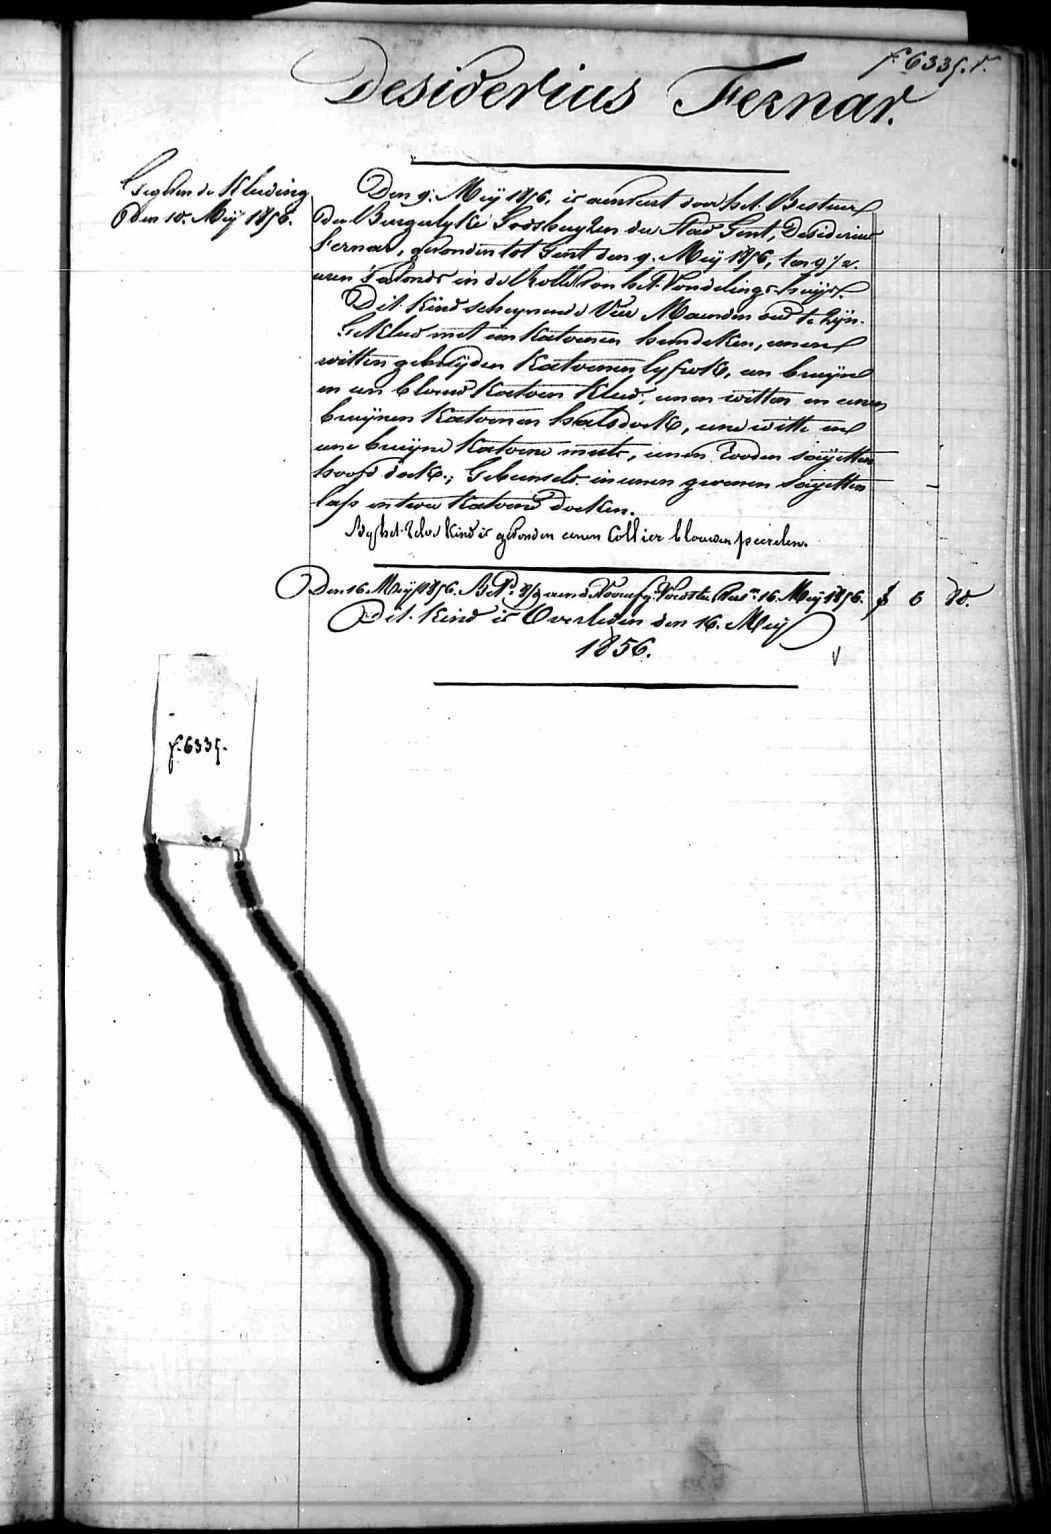 f. 6335. v.
Desiderius Fernar.
Kleeding
den 10. Meij 1856.
Den 9. Meij 1856, is aenveert door het Bestuur
der Burgerlyke Godshuyzen der Stad Gent, Desiderius
Fernar, gevonden tot Gent den 9. Meij 1856, ten 9 1/2
uren s'avonds in de Rolle van het Vondelings-huys.
Dit kind schynende Vier Maenden oud te zyn.
Gekleed met een katoenen hemdeken, eenen
witten gebreyden katoenen lyfrok, een bruyn
en een blauw katoen kleed, eenen witten en eenen
bruynen katoenen halsdoek, eene witte en
eene bruyne katoene muts, eenen rooden sayetten
hoofd doek; Gebunseld in eenen groenen sayetten
lap en twee katoene doeken.
By het zelve kind is gevonden eenen Collier blauwe peirelen.
Den 16. Meij 1856. 16. Meij 1856. f 6
Dit kind is Overleden den 16. Meij
1856.
f. 6335.